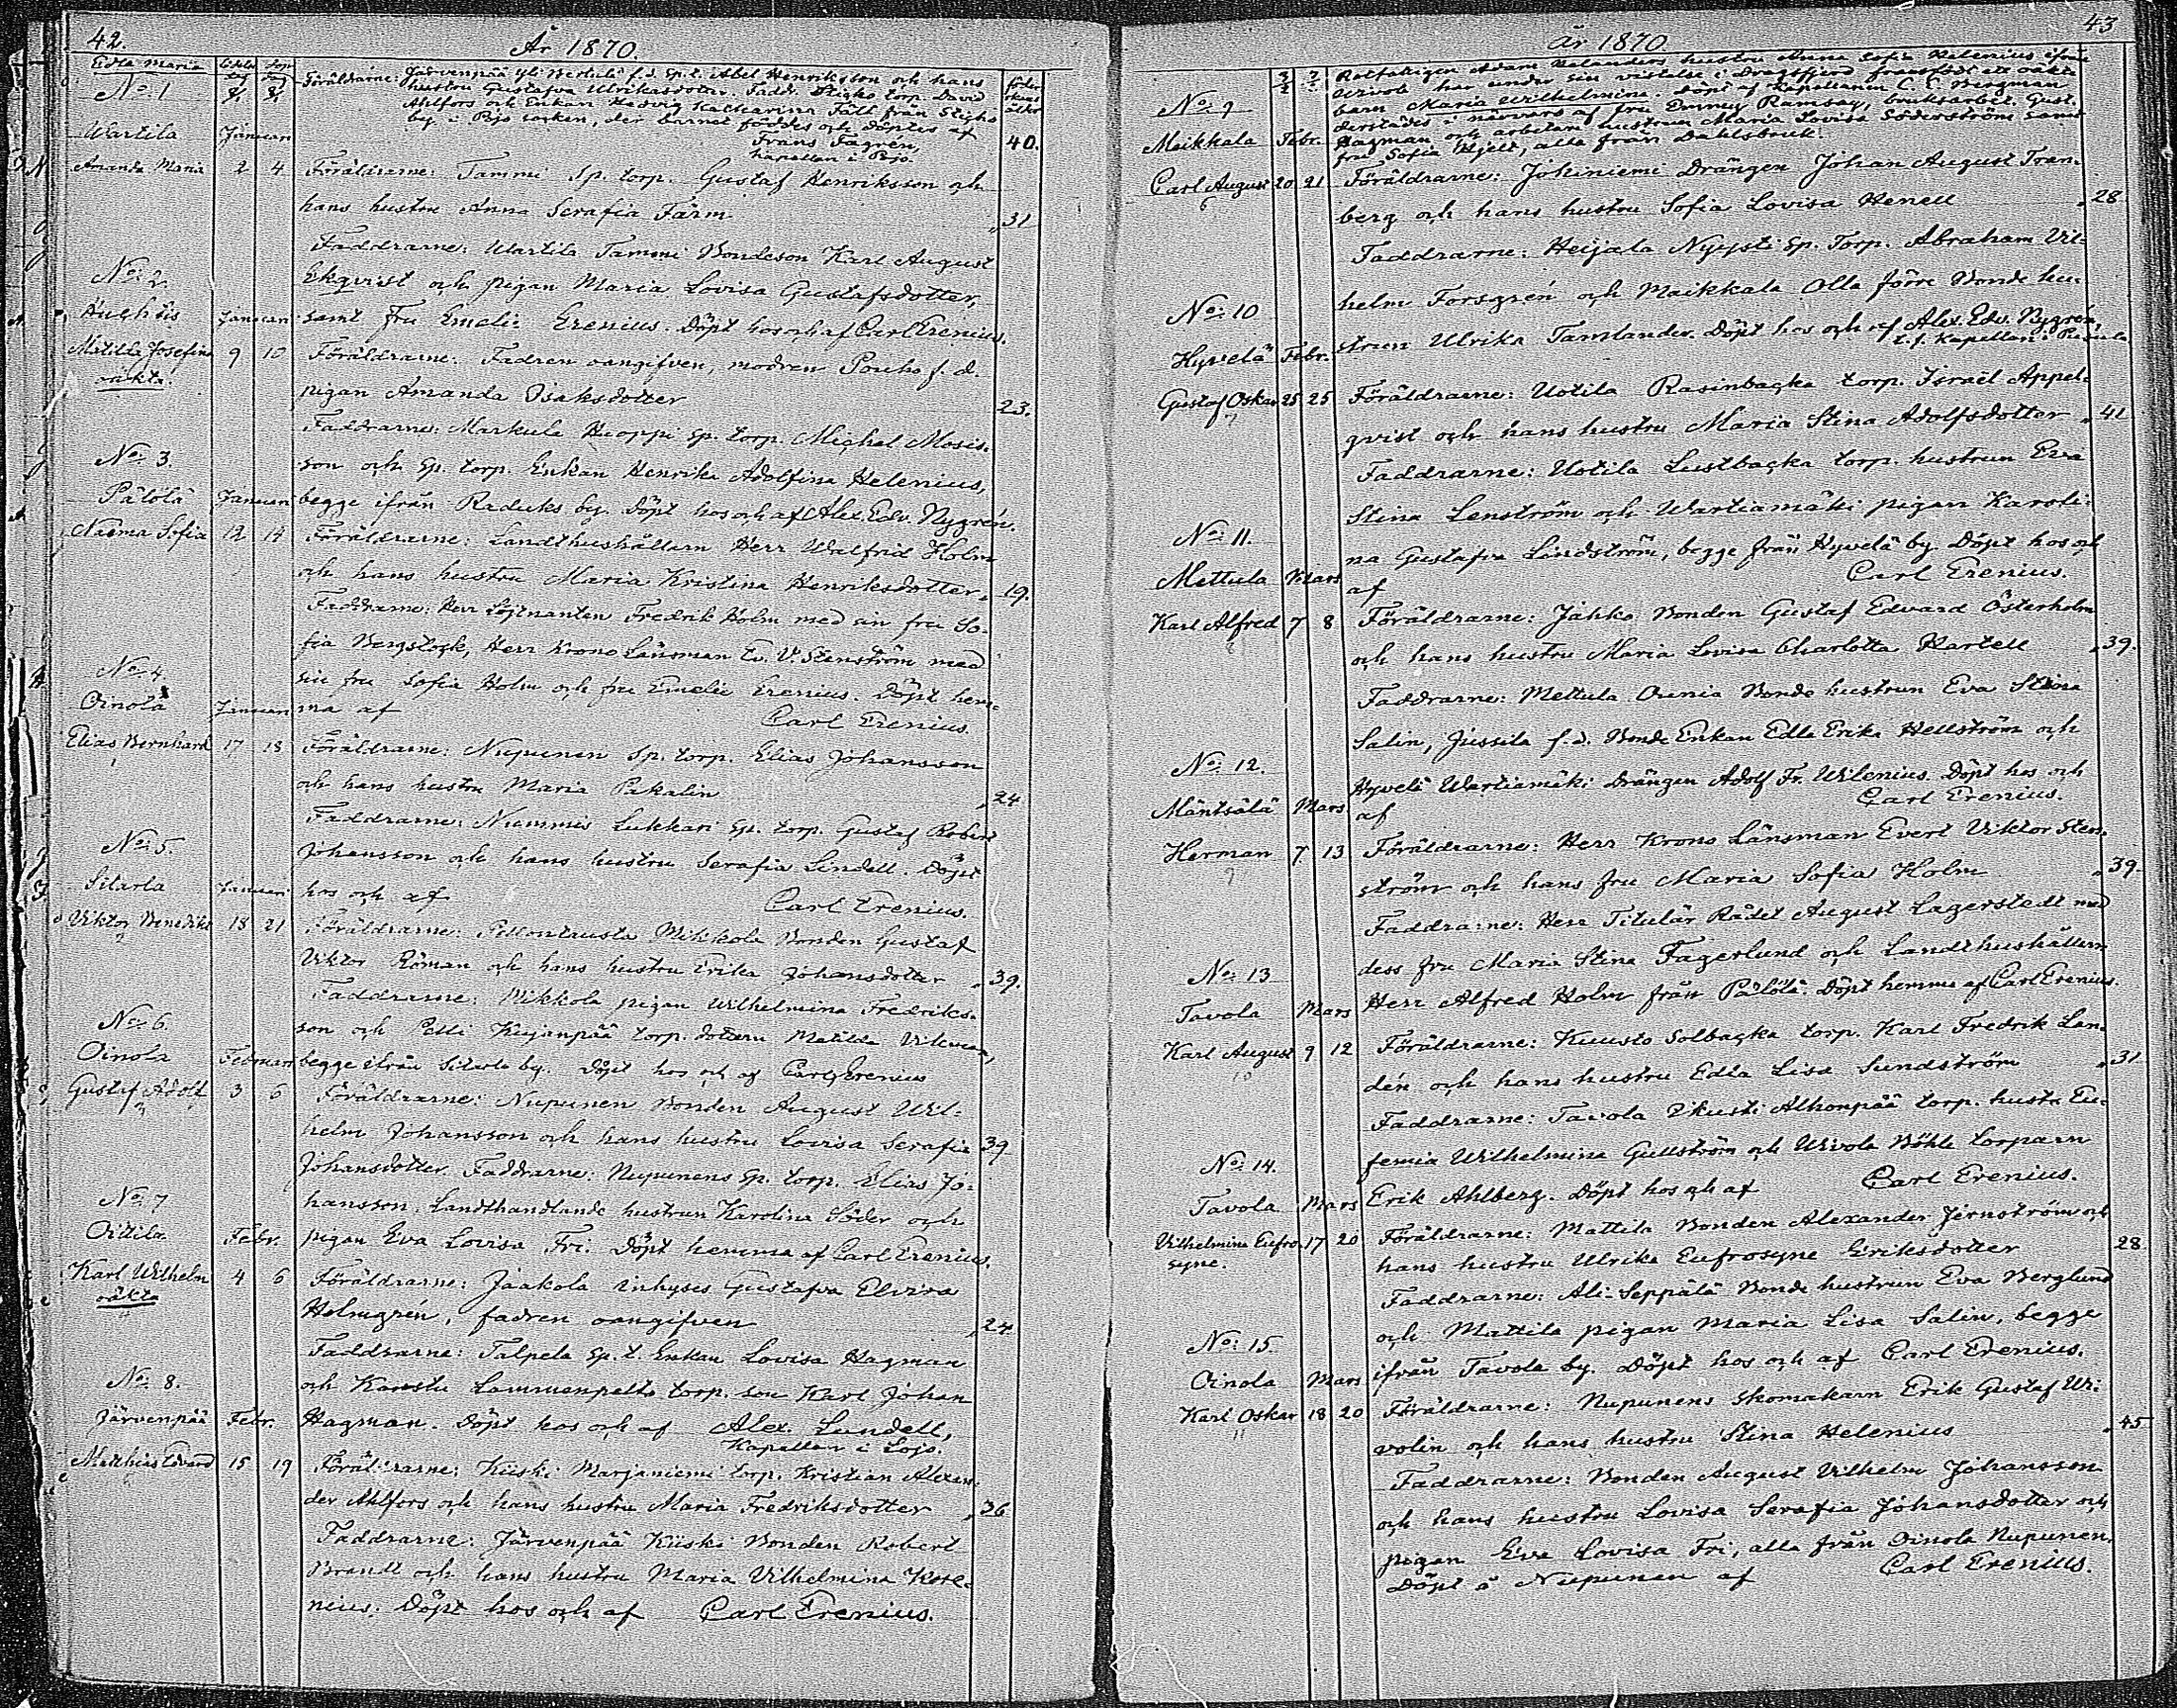 42.
År 1870.
Edla Maria
Föräldrarne: Järvenpää Yli Mertula f.d. sp. t. Abel Henriksson och hans
hustru Gustafva Ulriksdotter. Faddr. Stighs torp. David
Ahlfors och Enkan Hedvig Katharina Fält från Stighs
by i Pojo socken, der barnet föddes och döptes af
Frans Fagrén,
kapellan i Pojo.
40.
No: 1
Wartila Januari
Amanda Maria 2 4 Föräldrarne: Tammi Sp. torp. Gustaf Henriksson och
hans hustru Anna Serafia Färm „31
Faddrarne: Wartila Tammi Bondeson Karl August
Ekqvist och pigan Maria Lovisa Gustafsdotter,
samt fru Emelie Erenius. Döpt hos och af Carl Erenius.
No: 2.
Huhtis Januari
Matilda Josefina 9 10 Föräldrarne: Fadren oangifven, modren Pouho f. d.
oäkta.
pigan Amanda Isaksdotter 23.
Faddrarne: Markula Huoppi sp. torp. Michel Mosis-
son och sp. torp. Enkan Henrika Adolfina Helenius,
begge ifrån Raduks by. Döpt hos och af Alex. Edv. Nygrén.
No: 3.
Pälölä Januari
Naëma Sofia 12 14 Föräldrarne: Landthushållarn Herr Walfrid Holm
och hans hustru Maria Kristina Henriksdotter „19.
Faddrarne: Herr Löjtnanten Fredrik Holm med sin fru So-
fia Bergstock, Herr Krono Länsman Ev. V. Stenström med
sin fru Sofia Holm och fru Emelie Erenius. Döpt hem-
ma af Carl Erenius.
No: 4.
Oinola Januari
Elias Bernhard 17 18 Föräldrarne: Nupunen Sp. torp. Elias Johansson
och hans hustru Maria Pakalin „24
Faddrarne: Nummis Lukkari sp. torp. Gustaf Robert
Johansson och hans hustru Serafia Lindell. Döpt
hos och af Carl Erenius.
No: 5.
Sitarla Januari
Viktor Benedikt 18 21 Föräldrarne: Pellontausta Mikkola Bonden Gustaf
Viktor Röman och hans hustru Erika Johansdotter „39.
Faddrarne: Mikkola pigan Wilhelmina Fredriks-
son och Petti Kujanpää torp. dottern Matilda
begge ifrån Sitarla by. Döpt hos och af Carl Erenius
No: 6.
Oinola Februari
Gustaf Adolf 3 6 Föräldrarne: Nupunen Bonden August Wil-
helm Johansson och hans hustru Lovisa Serafia 39
Johansdotter. Faddrarne: Nupunens sp. torp. Elias Jo-
hansson. Landthandlande hustrun Karolina Söder och
pigan Eva Lovisa Fri. Döpt hemma af Carl Erenius.
No: 7
Oitila Febr.
Karl Wilhelm 4 6 Föräldrarne: Jaakola inhyses Gustafva Elvira
oäkta
Holmgrén, fadren oangifven „24
Faddrarne: Talpela sp. t. Enkan Lovisa Hagman
och Karstu Lammenpelto torp. son Karl Johan
Hagman. Döpt hos och af Alex. Lundell,
Kapellan i Lojo.
No: 8.
Järvenpää Febr.
Matthias Edvard 15 19 Föräldrarne: Kiiski Marjaniemi torp. Kristian Alexan-
der Ahlfors och hans hustru Maria Fredriksdotter „36
Faddrarne: Järvenpää Kiiski Bonden Robert
Brandt och hans hustru Maria Vilhelmina Kore-
nius. Döpt hos och af Carl Erenius.
43
År 1870
Rotfattigen Adam Helanders hustru Anna Sofia Helenius ifrån
Wivola har under sin vistelse i Dragsfjerd framfödt ett oäkta
barn Maria Wilhelmina. Döpt af Kapellanen C. C. Bergman
derstädes i närvaro af fru Emmy Ramsay, bruksarbet. Gust.
Hagman och arbetare hustrun Maria Lovisa Söderström samt
fru Sofia Hjelt, alla från Dahlsbruk.
No: 9
Maikkala Febr.
Carl August 20 21 Föräldrarne: Johiniemi Drängen Johan August Tran-
berg och hans hustru Sofia Lovisa Henell „28
Faddrarne: Heijala Nyysti sp. Torp. Abraham Vil-
helm Forsgrén och Maikkala Olla Jörn Bonde hu-
strun Ulrika Tamlander. Döpt hos och af Alex. Edv. Nygrén
t. f. Kapellan i
No: 10
Hyvelä Febr.
Gustaf Oskar 25 25 Föräldrarne: Uotila Rasinbacka torp. Israël Appel-
qvist och hans hustru Maria Stina Adolfsdotter „41
Faddrarne: Uotila Lustbacka torp. hustrun Eva
Stina Lenström och Wartiamäki pigan Karoli-
na Gustafva Lindström, begge från Hyvelä by. Döpt hos och
af Carl Erenius.
No: 11.
Mettula Mars
Karl Alfred 7 8 Föräldrarne: Jahko Bonden Gustaf Edvard Österholm
och hans hustru Maria Lovisa Charlotta Hartell „39.
Faddrarne: Mettula Ounia Bonde hustrun Eva Stina
Salin, Jussila f. d. Bonde Enkan Edla Erika Hellström och
Hyvelä Wartiamäki Drängen Adolf Fr. Wilenius. Döpt hos och
af Carl Erenius.
No: 12.
Mäntsälä Mars.
Herman 7 13 Föräldrarne: Herr Krono Länsman Evert Viktor Sten-
ström och hans fru Maria Sofia Holm „39
Faddrarne: Herr Titulär Rådet August Lagerstedt med
dess fru Maria Stina Fagerlund och Landthushållarn
Herr Alfred Holm från Pälölä. Döpt hemma af Carl Erenius.
No: 13
Tavola Mars
Karl August 9 12 Föräldrarne: Kuusto Solbacka torp. Karl Fredrik Lan-
dén och hans hustru Edla Lisa Sundström „31
Faddrarne: Tavola Alhonpää torp. hustr Eu-
femia Wilhelmina Gullström och Wivola Böhle torparn
Erik Ahlberg. Döpt hos och af Carl Erenius.
No: 14.
Tavola Mars
Vilhelmina Eufro- 17 20 Föräldrarne: Mattila Bonden Alexander Jernström och
syne.
hans hustru Ulrika Eufrosyne Eriksdotter 28
Faddrarne: Ali-Seppälä Bonde hustrun Eva Berglund
och Mattila pigan Maria Lisa Salin, begge
ifrån Tavola by. Döpt hos och af Carl Erenius.
No: 15.
Oinola Mars
Karl Oskar 18 20 Föräldrarne: Nupunens skomakarn Erik Gustaf Wi-
volin och hans hustru Stina Helenius „45
Faddrarne: Bonden August Vilhelm Johansson
och hans hustru Lovisa Serafia Johansdotter och
pigan Eva Lovisa Fri, alla från Oinola Nupunen.
Döpt å Nupunen af Carl Erenius.